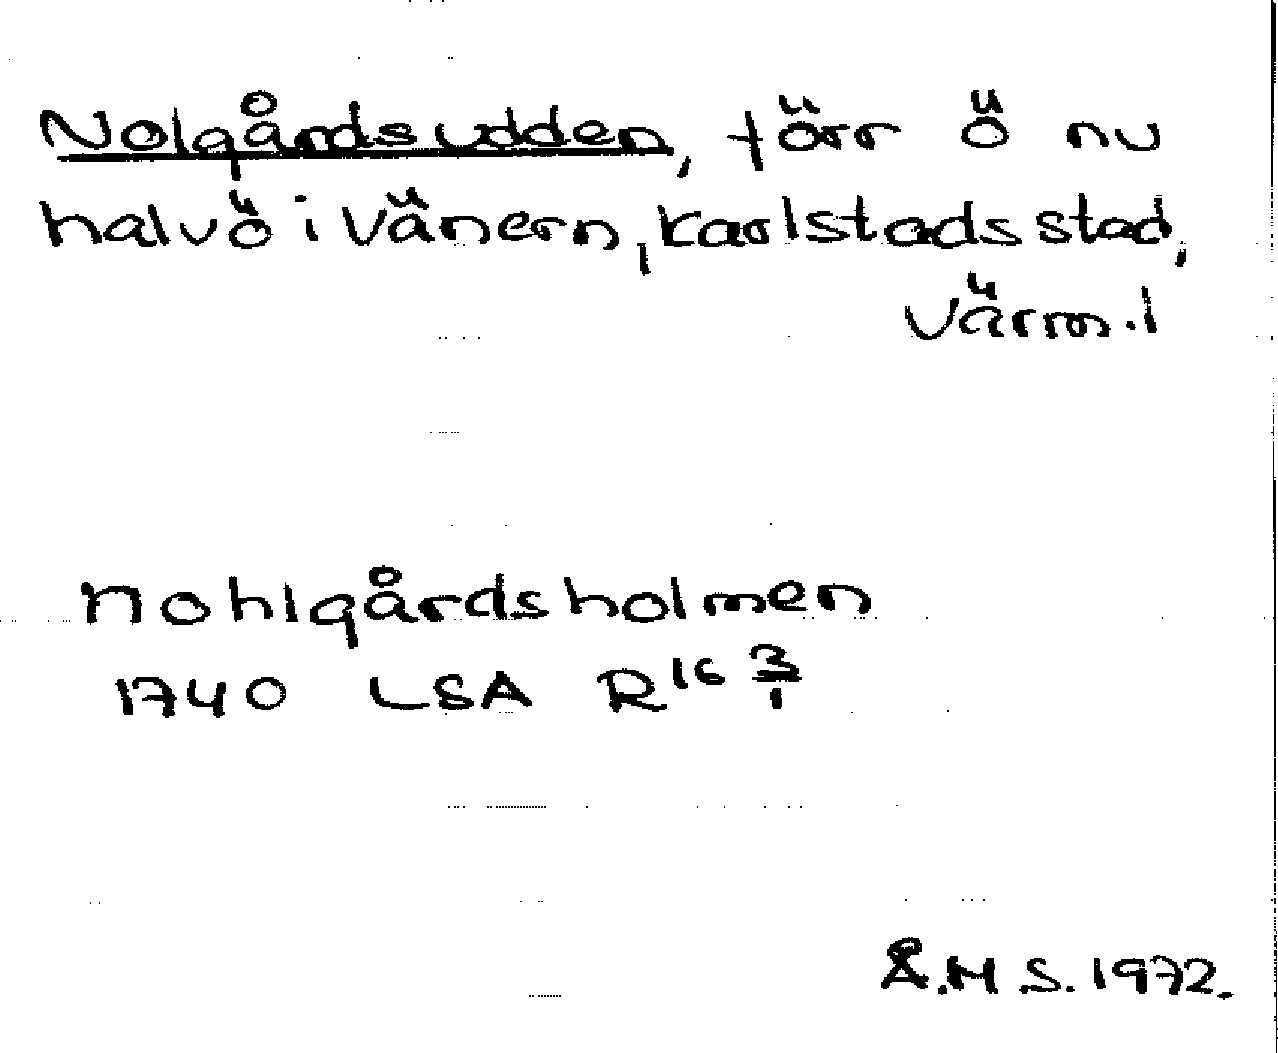 Nolgårdsudden, förr ö nu
halvö i Vänern, Karlstads stad,
Värml.
nohlgårdsholmen
1740 LSA R16 3/1
Å.H S. 1972.